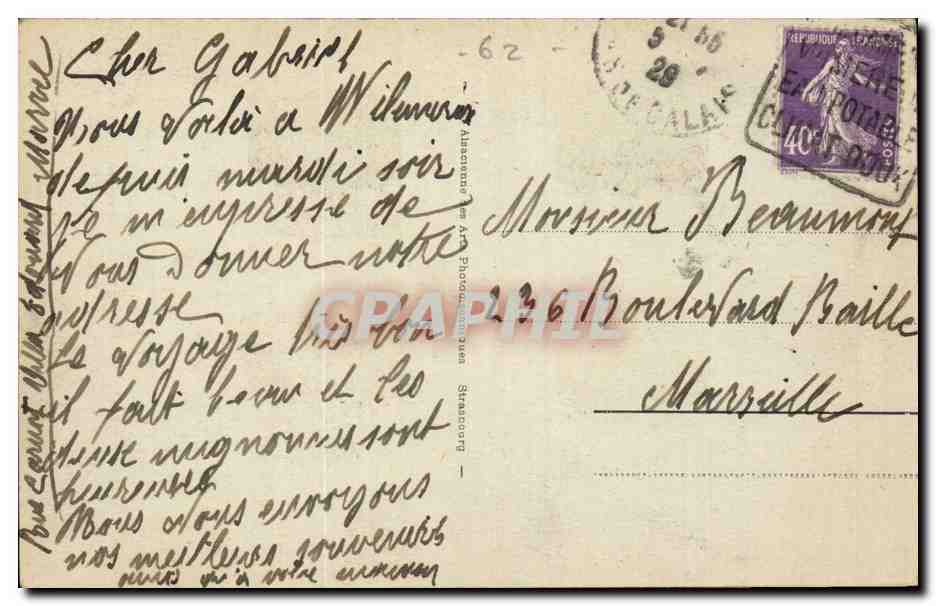 Cher Gabriel
Nous voilà a Wilmereux
depuis mardi soir
je m'empresse de
vous donner notre
adresse
Le voyage très bon
il fait beau et les
deux mignonnes sont
heureuses
Nous vous envoyons
nos meilleurs souvenirs
ainsi qu'à votre maman
Rue Carnot Villa Edouard Marie
Alsacienne des Arts Photomécaniques Strasbourg
- 62 -
21 56
5
29
PAS DE CALAIS
REPUBLIQUE FRANCAISE
40c
POSTES
EAU POTABLE
Monsieur Beaumont
236 Boulevard Baille
Marseille
CPAPHIL